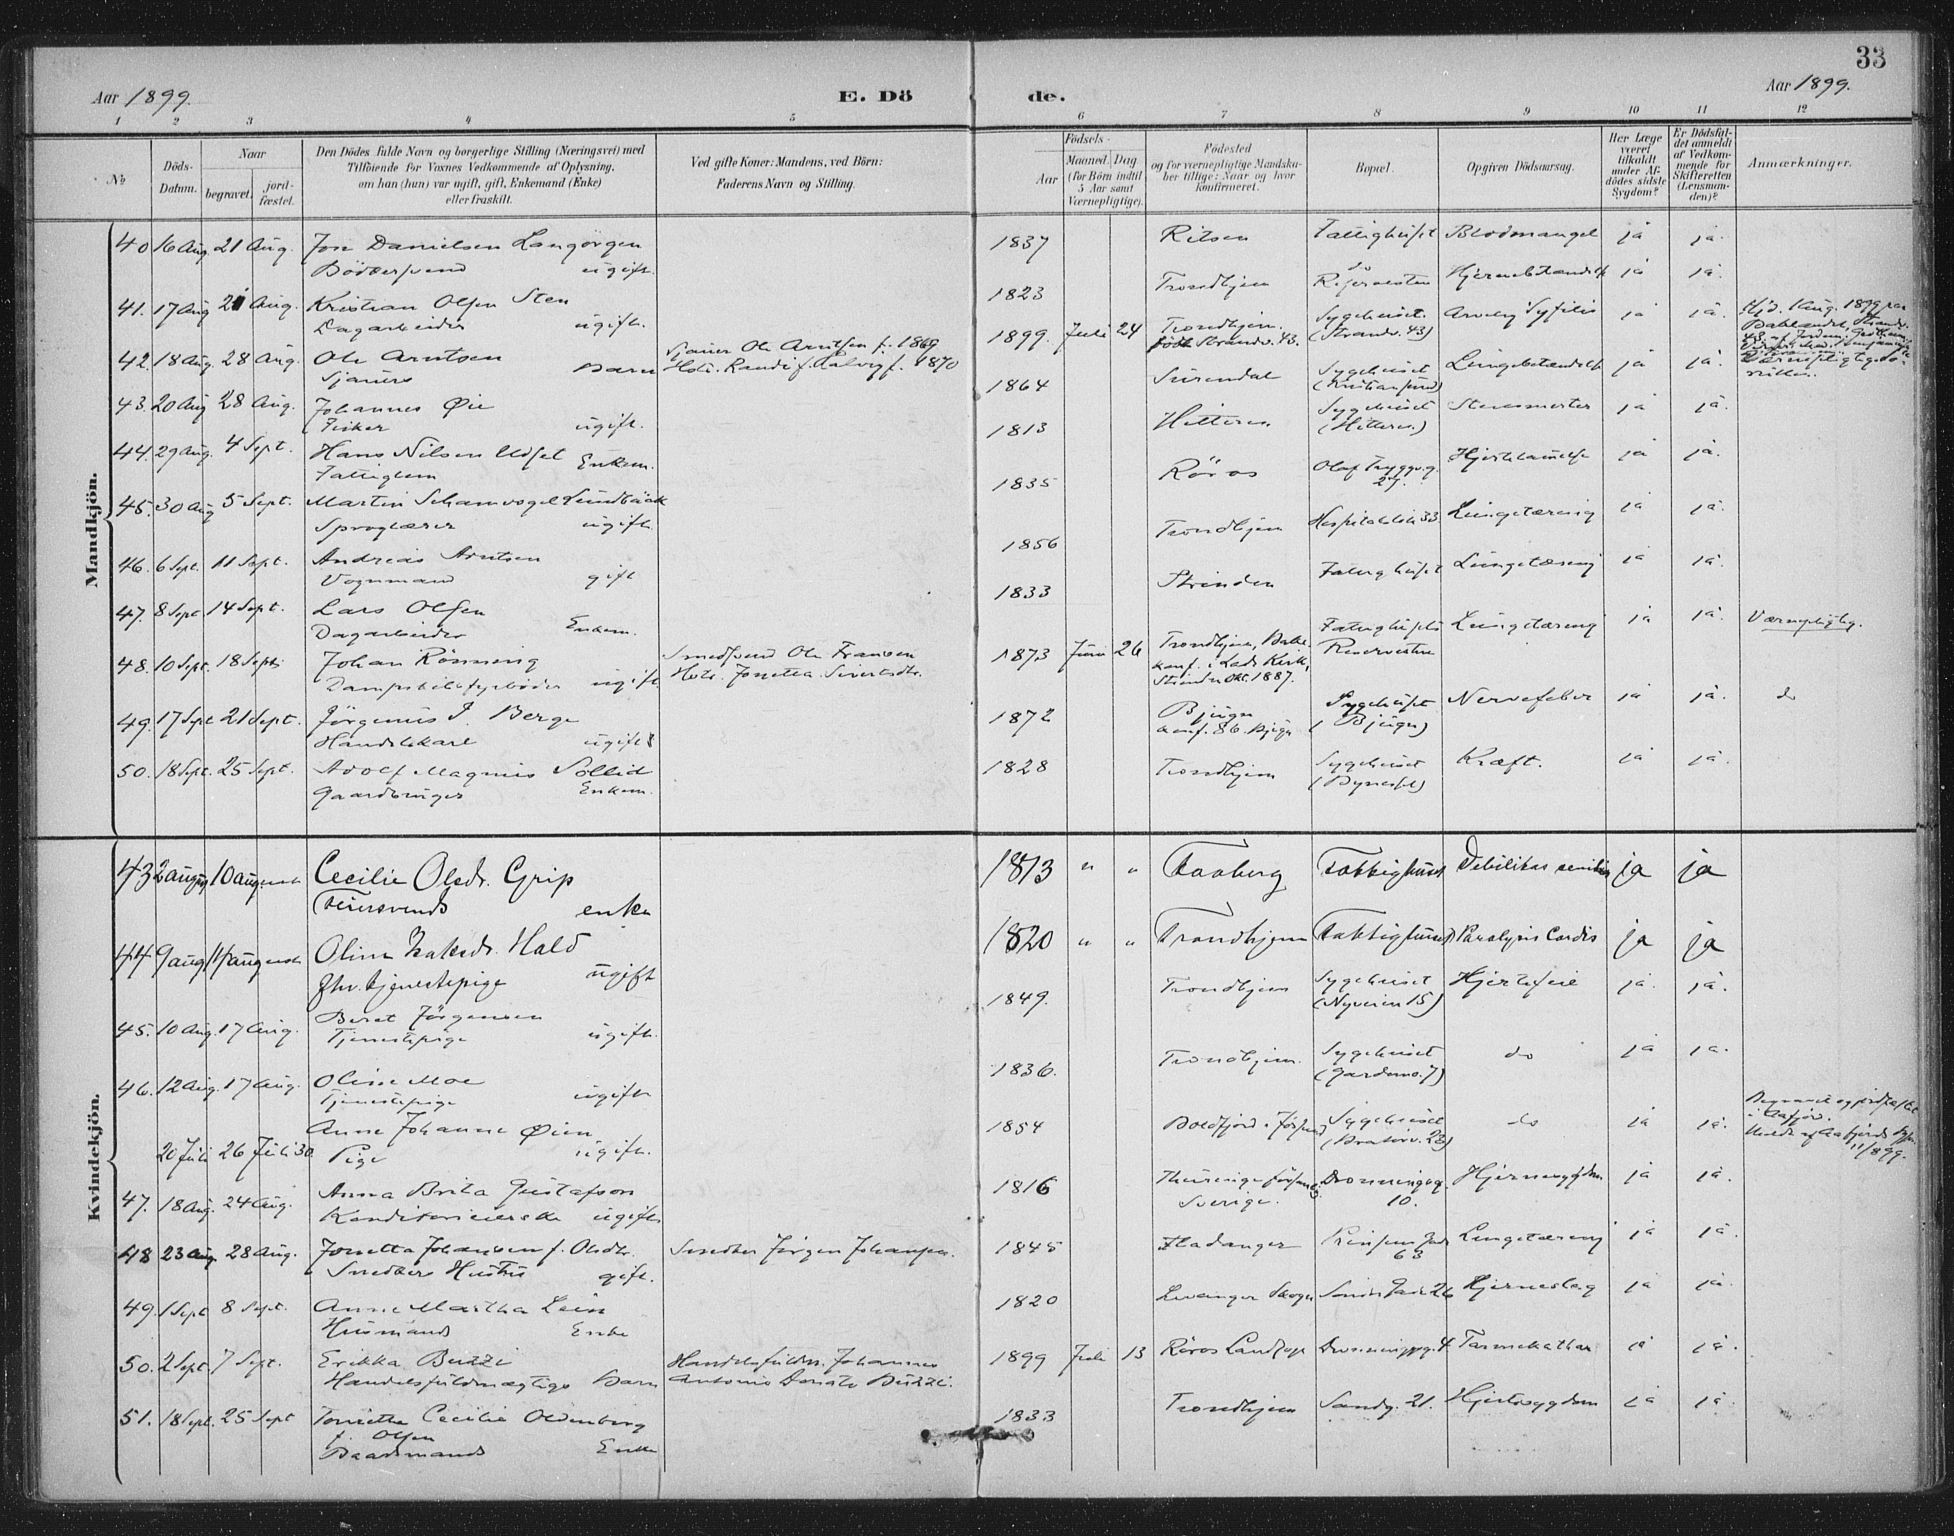 33
Aar 1899.
E. Dö
de.
Aar 1899.
1 2 3 4 5 6 7 8 9 10 11 12
№
Döds-Datum.
Naar
begravet.
jordfæstet.
Den Dödes fulde Navn og borgerlige Stilling (Næringsvei) med
Tilföiende for Voxnes Vedkommende af Oplysning,
om han (hun) var ugift, gift, Enkemand (Enke)
eller fraskilt.
Ved gifte Koner: Mandens, ved Börn:
Faderens Navn og Stilling.
Födsels-
Aar
Maaned. Dag
(for Börn indtil
5 Aar samt
Værnepligtige).
Födested
og for værnepligtige Mandskaber tillige: Naar og hvor
konfirmeret.
Bopæl.
Opgiven Dödsaarsag.
Har Læge
været
tilkaldt
under Afdödes sidste
Sygdom?
Er Dödsfaldet anmeldt
af Vedkommende for
Skifteretten
(Lensmanden)?
Anmærkninger.
Mandkjön.
40 16 Aug 21 Aug. Jon Danielsen Langörgen 1837 Ritsen Fattighuset Blodmangel ja ja.
Bödkersvend ugift.
41. 17 Aug 21 Aug. Kristian Olsen Sten 1823 Trondhjem do Hjernebetændelse ja ja.
Dagarbeider ugift.
42. 18 Aug 28 Aug. Ole Arntsen Barn Sjauer Ole Arntsen f. 1869 1899. Juli 24 Trondhjem. Sygehuset. Arvelig Syfilis ja ja.
Sjauers f. 1870 Strandv. 43. (Strandv. 43)
43. 20 Aug 28 Aug. Johannes Øie 1864 Surendal Sygehuset Lungebetændelse ja ja.
Fisker ugift. (Kristiansund)
44. 29 Aug. 4 Sept. Hans Nilsen Enkem. 1813 Hitteren Sygehuset ja ja.
Fattiglem (Hitteren)
45. 30 Aug 5 Sept. Martin Schamvogel Lundbäck 1835 Röros Olaf Trygvg. 27. ja ja.
Sproglærer ugift.
46. 6 Sept. 11 Sept. Andreas Arntsen 1856 Trondhjem 33 Lungetæring ja ja.
Vognmand gift
47. 8 Sept. 14 Sept. Lars Olsen 1833 Strinden Fattighuset Lungetæring ja ja.
Dagarbeider Enkem.
48. 10 Sept. 18 Sept. Johan Rönning Smedsvend Ole Fransen 1873 Juni 26 Trondhjem, Bakke. Fattighusets Lungetæring ja ja. Værnepligtig.
Dampskibsfyrböder ugift Jonetta Sivertsdtr. konf. i Lade Kirke, Reservestue
Strinden Okt. 1887.
49. 17 Sept 21 Sept. Jörginus J. Berge 1872 Bjugn Sygehuset Nervefeber ja ja. do
Handelskarl ugift konf. 86. Bjugn (Bjugn)
50. 18 Sept. 25 Sept. Adolf Magnus Sollid 1828 Trondhjem Sygehuset Kræft. ja ja.
Gaardbruger Enkem. (Bynesset)
Kvindekjön.
43 2 august 10 august Cecilie Olsdr. Grip 1813 " " Faaberg Fattighuset Debilitas senilis ja ja
Feiersvends enke
44 9 aug 14 august Oline Isaksdr. Hald 1820 " " Trondhjem Fattighuset Paralysis Cordis ja ja
fhv. tjenestepige ugift
45. 10 Aug. 17 Aug. Beret Jörgensen 1849. Trondhjem Sygehuset Hjertefeil ja. ja.
Tjenestepige ugift. (Nyveien 15)
46. 12 Aug. 17 Aug. Oline Moe 1836. Trondhjem. Sygehuset do ja ja.
Tjenestepige ugift. (Gardemo. 7)
20 Juli 26 Juli 30 Anne Johanne Øien 1854 Sygehuset do ja ja. Begravet og jordfæstet
Pige ugift. i Aafjord.
11/8 99.
47. 18 Aug. 24 Aug. Anna Brita Gustafson 1816 Dronningsg. Hjernesygdom ja ja.
ugift Sverige. 10.
48 23 Aug. 28 Aug. Jonetta Johansen f. Olsdtr. Smedker Jörgen Johansen. 1845 Fladanger Prinsens Gade Lungetæring ja ja.
Smedkers Hustru gift. 63
49. 1 Sept. 8 Sept. Anne Martha Lein 1820 Levanger Skogn Söndre Gade 26 Hjerneslag ja ja.
Husmands Enke
50. 2 Sept. 7 Sept. Erikka Buzzi Handelsfuldm. Johannes 1899 Juli 13 Röros Landsogn Dronningsg. 4 Tarmekathar ja ja.
Handelsfuldmægtigs Barn Antonio Donato Buzzi.
51. 18 Sept. 25 Sept Tonette Cecilie Oldenborg 1833 Trondhjem Sandg. 21. Hjertesygdom ja ja.
f. Olsen
Baadsmands Enke